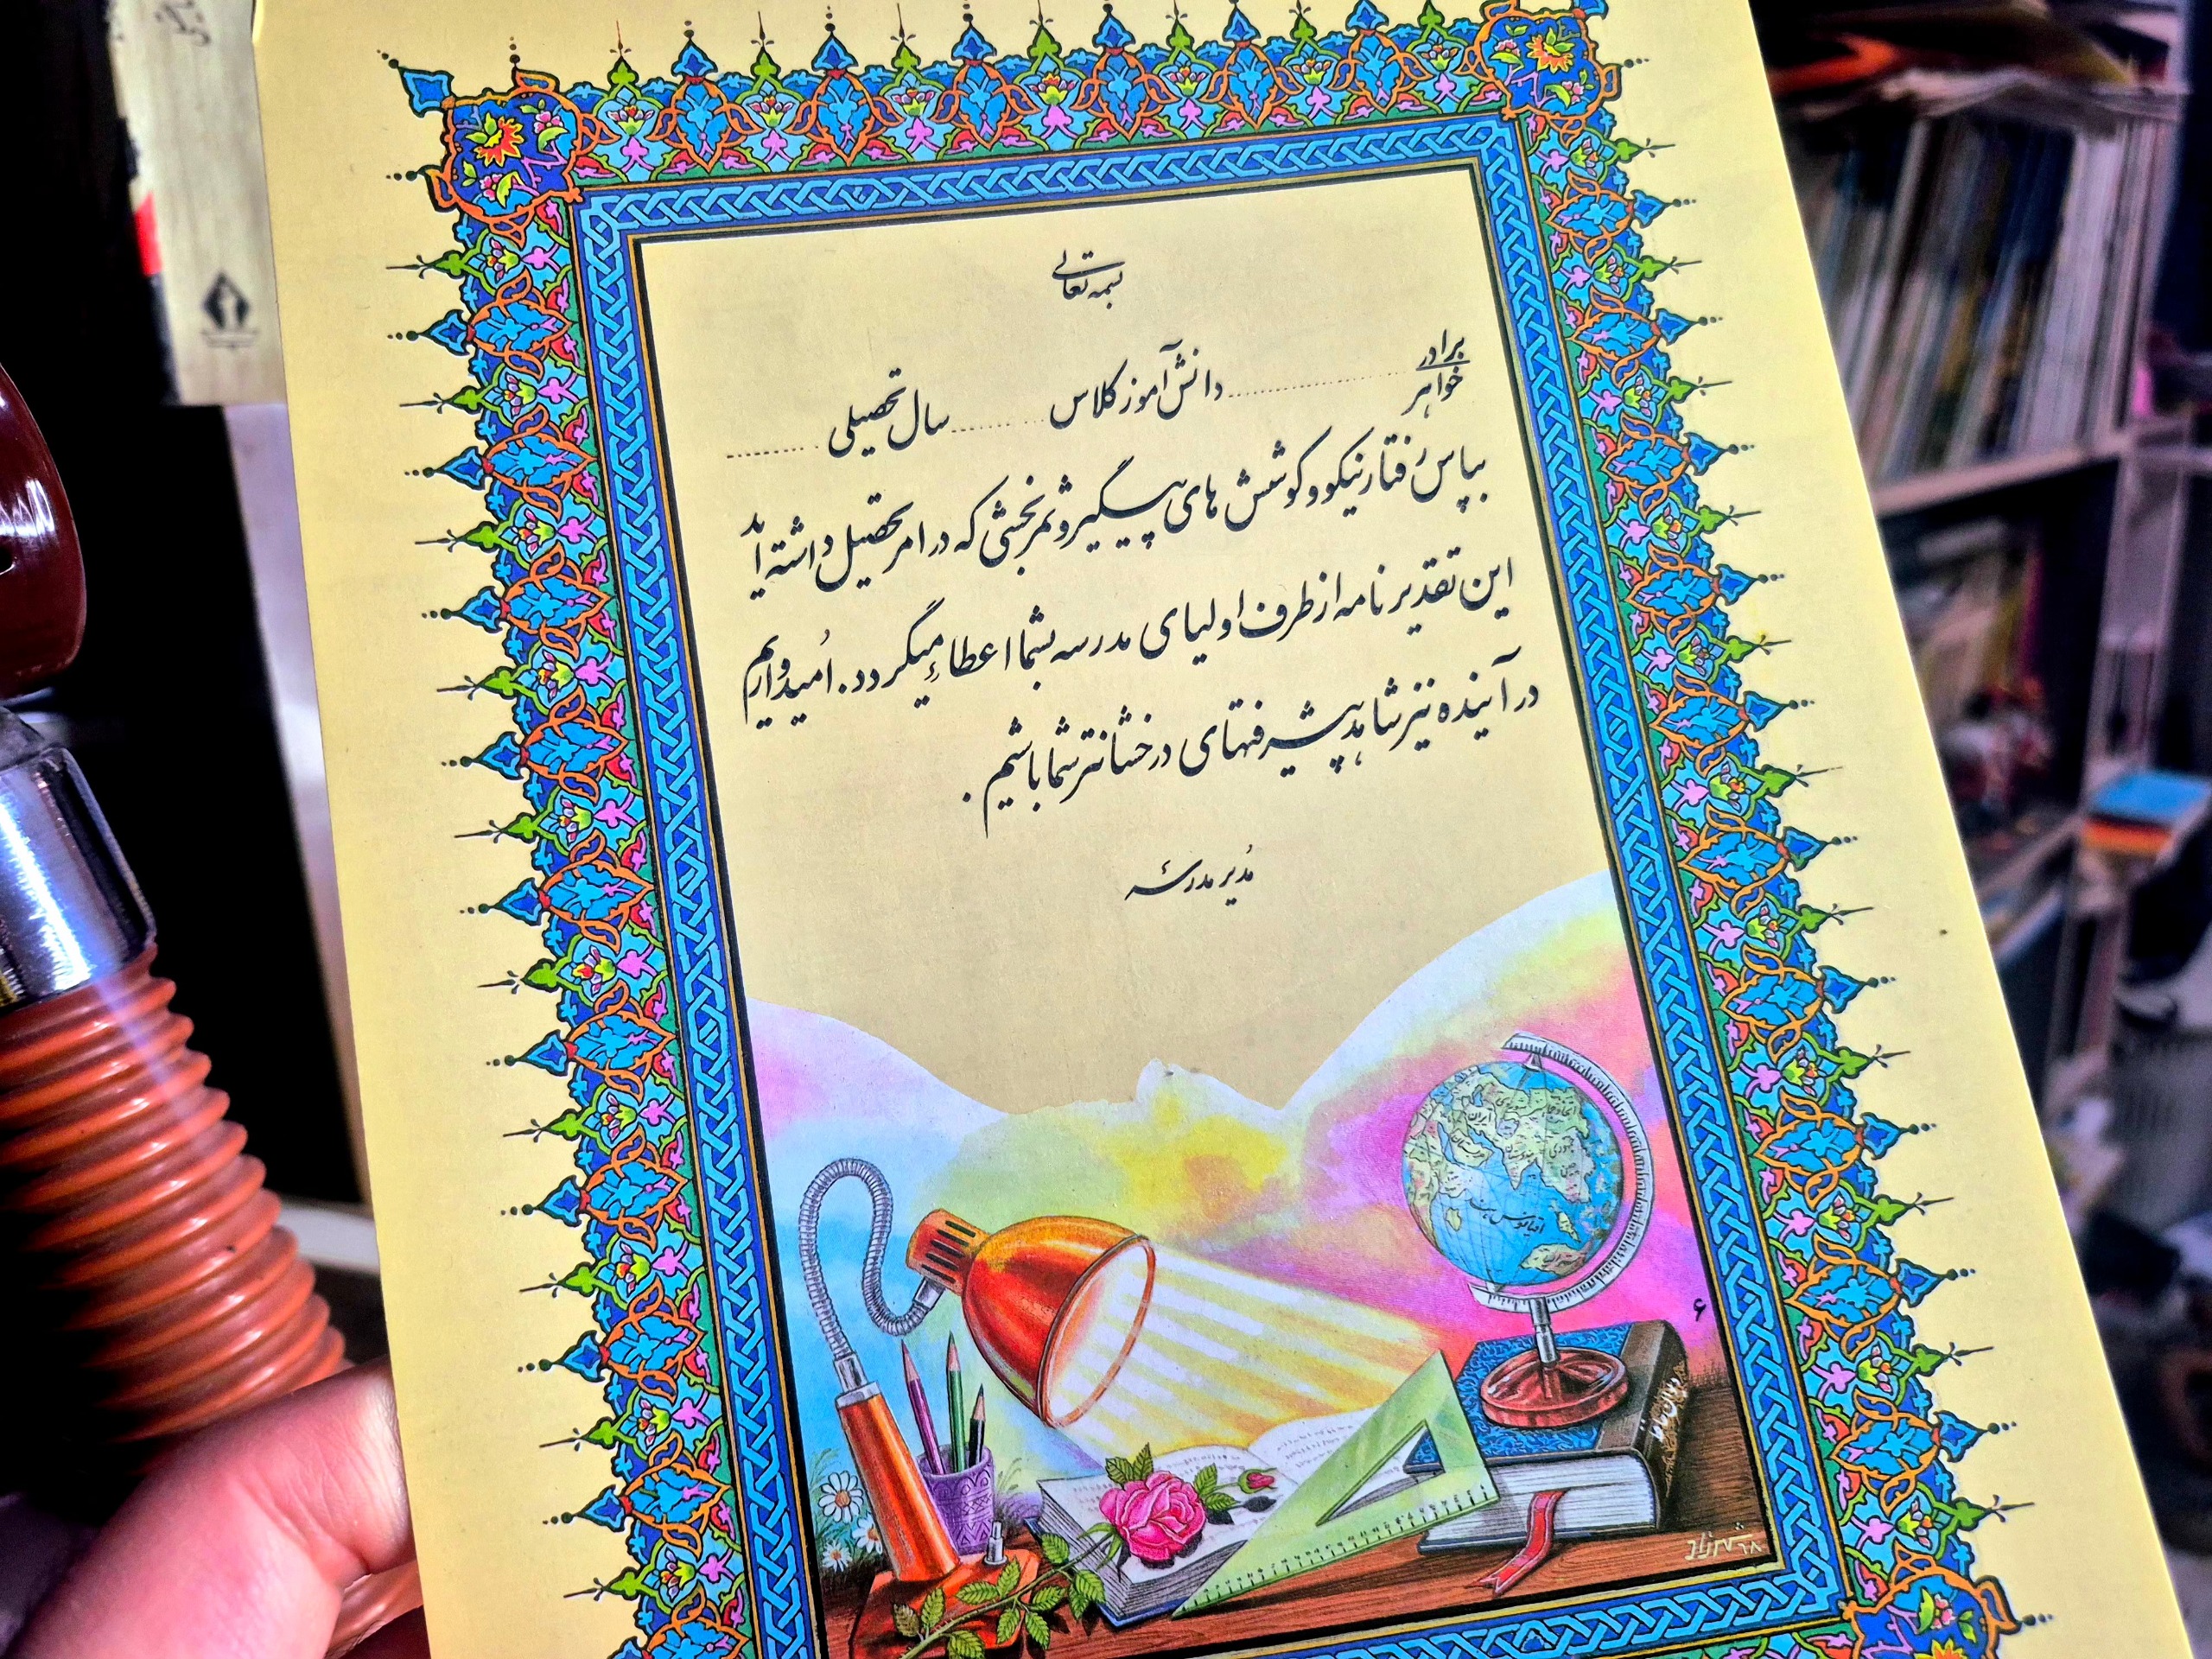 بسمه تعالی
برادر
خواهر .................... دانش آموز کلاس .......... سال تحصیلی ..........
بپاس رفتار نیکو و کوشش های پیگیر و ثمربخشی که در امر تحصیل داشته اید
این تقدیر نامه از طرف اولیای مدرسه بشما اعطاء میگردد. اُمیدواریم
در آینده نیز شاهد پیشرفتهای درخشانتر شما باشیم .
مُدیر مدرسهٔ
ایران
۶